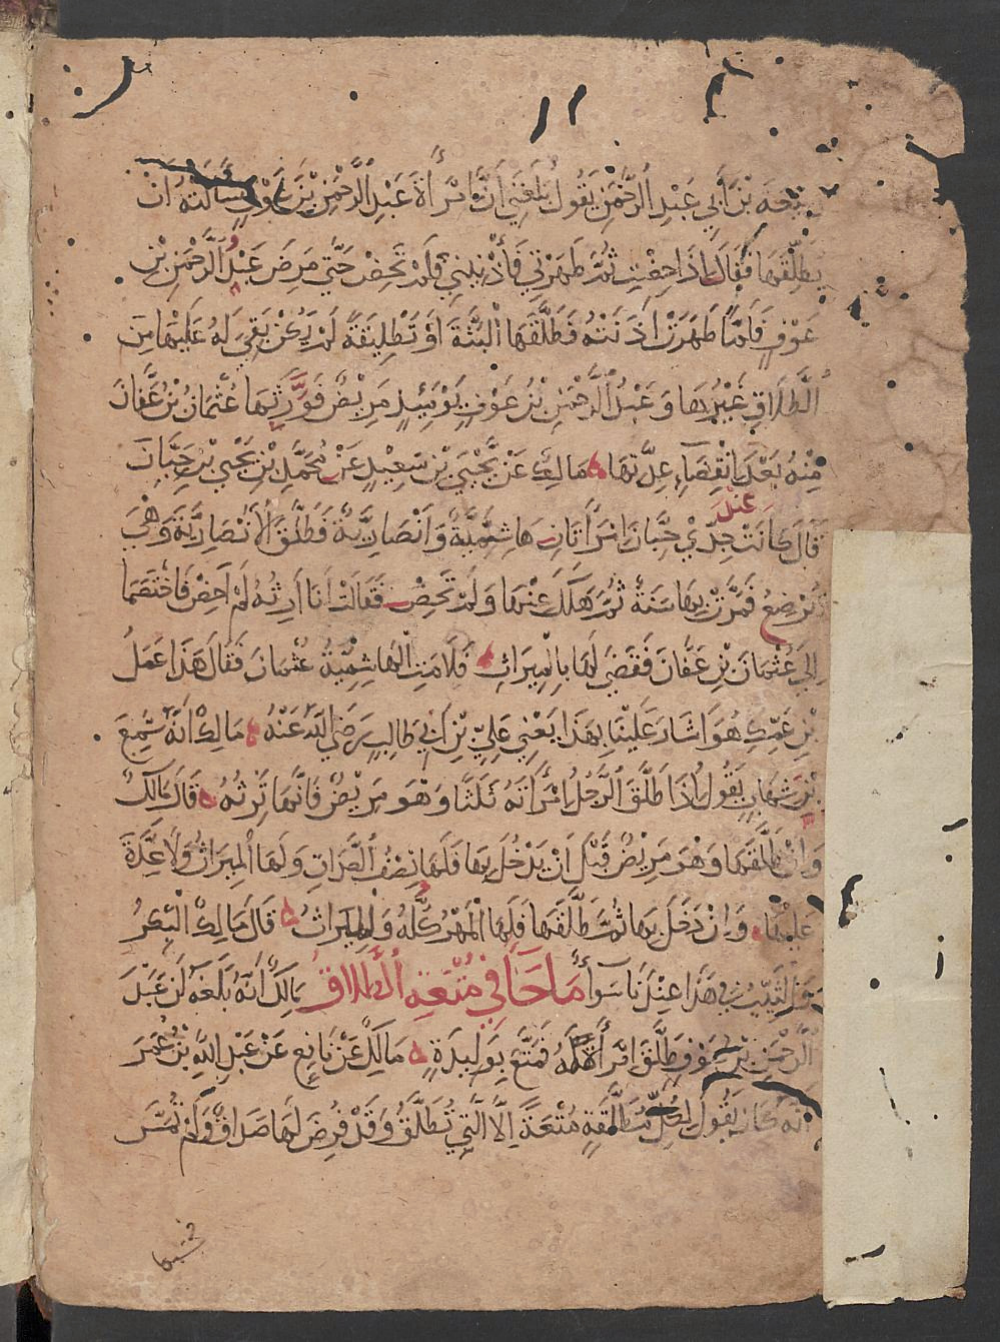 ربيعة بن أبي عبد الرحمن يقول بلغني أن امرأة عبد الرحمن بن عوف سألته أن
يطلقها فقال إذا حضت ثم طهرتي فأذنيني فلم تحض حتى مرض عبد الرحمن بن
عوف فلما طهرت اذنته فطلقها البتة أو تطليقة لم يكن بقي له عليها من
الطلاق غيرها وعبد الرحمن بن عوف يومئذ مريض فورثها عثمان بن عفان
منه بعد انقضاء عدتها مالك عن يحيى بن سعيد عن محمد بن يحيى بن حبان
قال كانت عند جدي حبان امرأتان هاشمية وأنصارية فطلق الأنصارية وهي
ترضع فمرت بها سنة ثم هلك عنها ولم تحض فقالت أنا أرثه لم أحض فاختصما
إلى عثمان بن عفان فقضى لها بالميراث فلامت الهاشمية عثمان فقال هذا عمل
بن عمك هو أشار علينا بهذا يعني علي بن أبي طالب رضي الله عنه مالك أنه سمع
بن شهاب يقول إذا طلق الرجل امرأته ثلثا وهو مريض فإنها ترثه قال مالك
وان طلقها وهو مريض قبل أن يدخل بها فلها نصف الصداق ولها الميراث ولا عدة
عليها وإن دخل بها ثم طلقها فلها المهر كله والميراث قال مالك البكر
والثيب في هذا عندنا سوأ ما جا في متعة الطلاق مالك أنه بلغه أن عبد
الرحمن بن عوف طلق امرأة له فمتع بوليدة مالك عن نافع عن عبد الله بن عمر
أنه كان يقول لكل مطلقة متعة إلا التي تطلق وقد فرض لها صداق ولم تمس
فحسبها